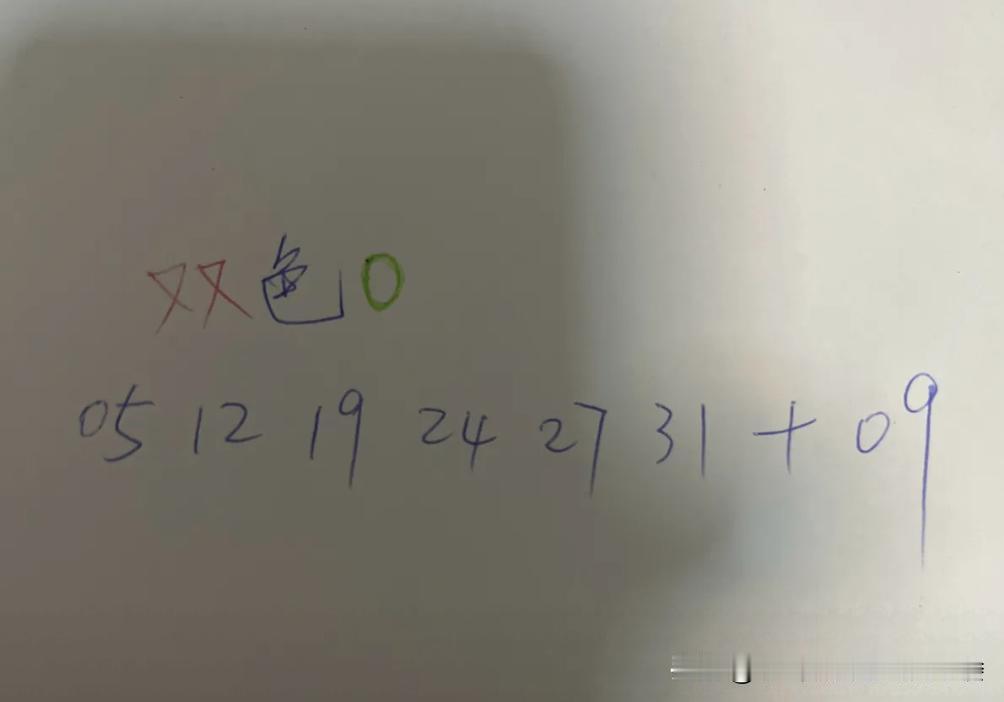 双色0
05 12 19 24 27 31 + 09